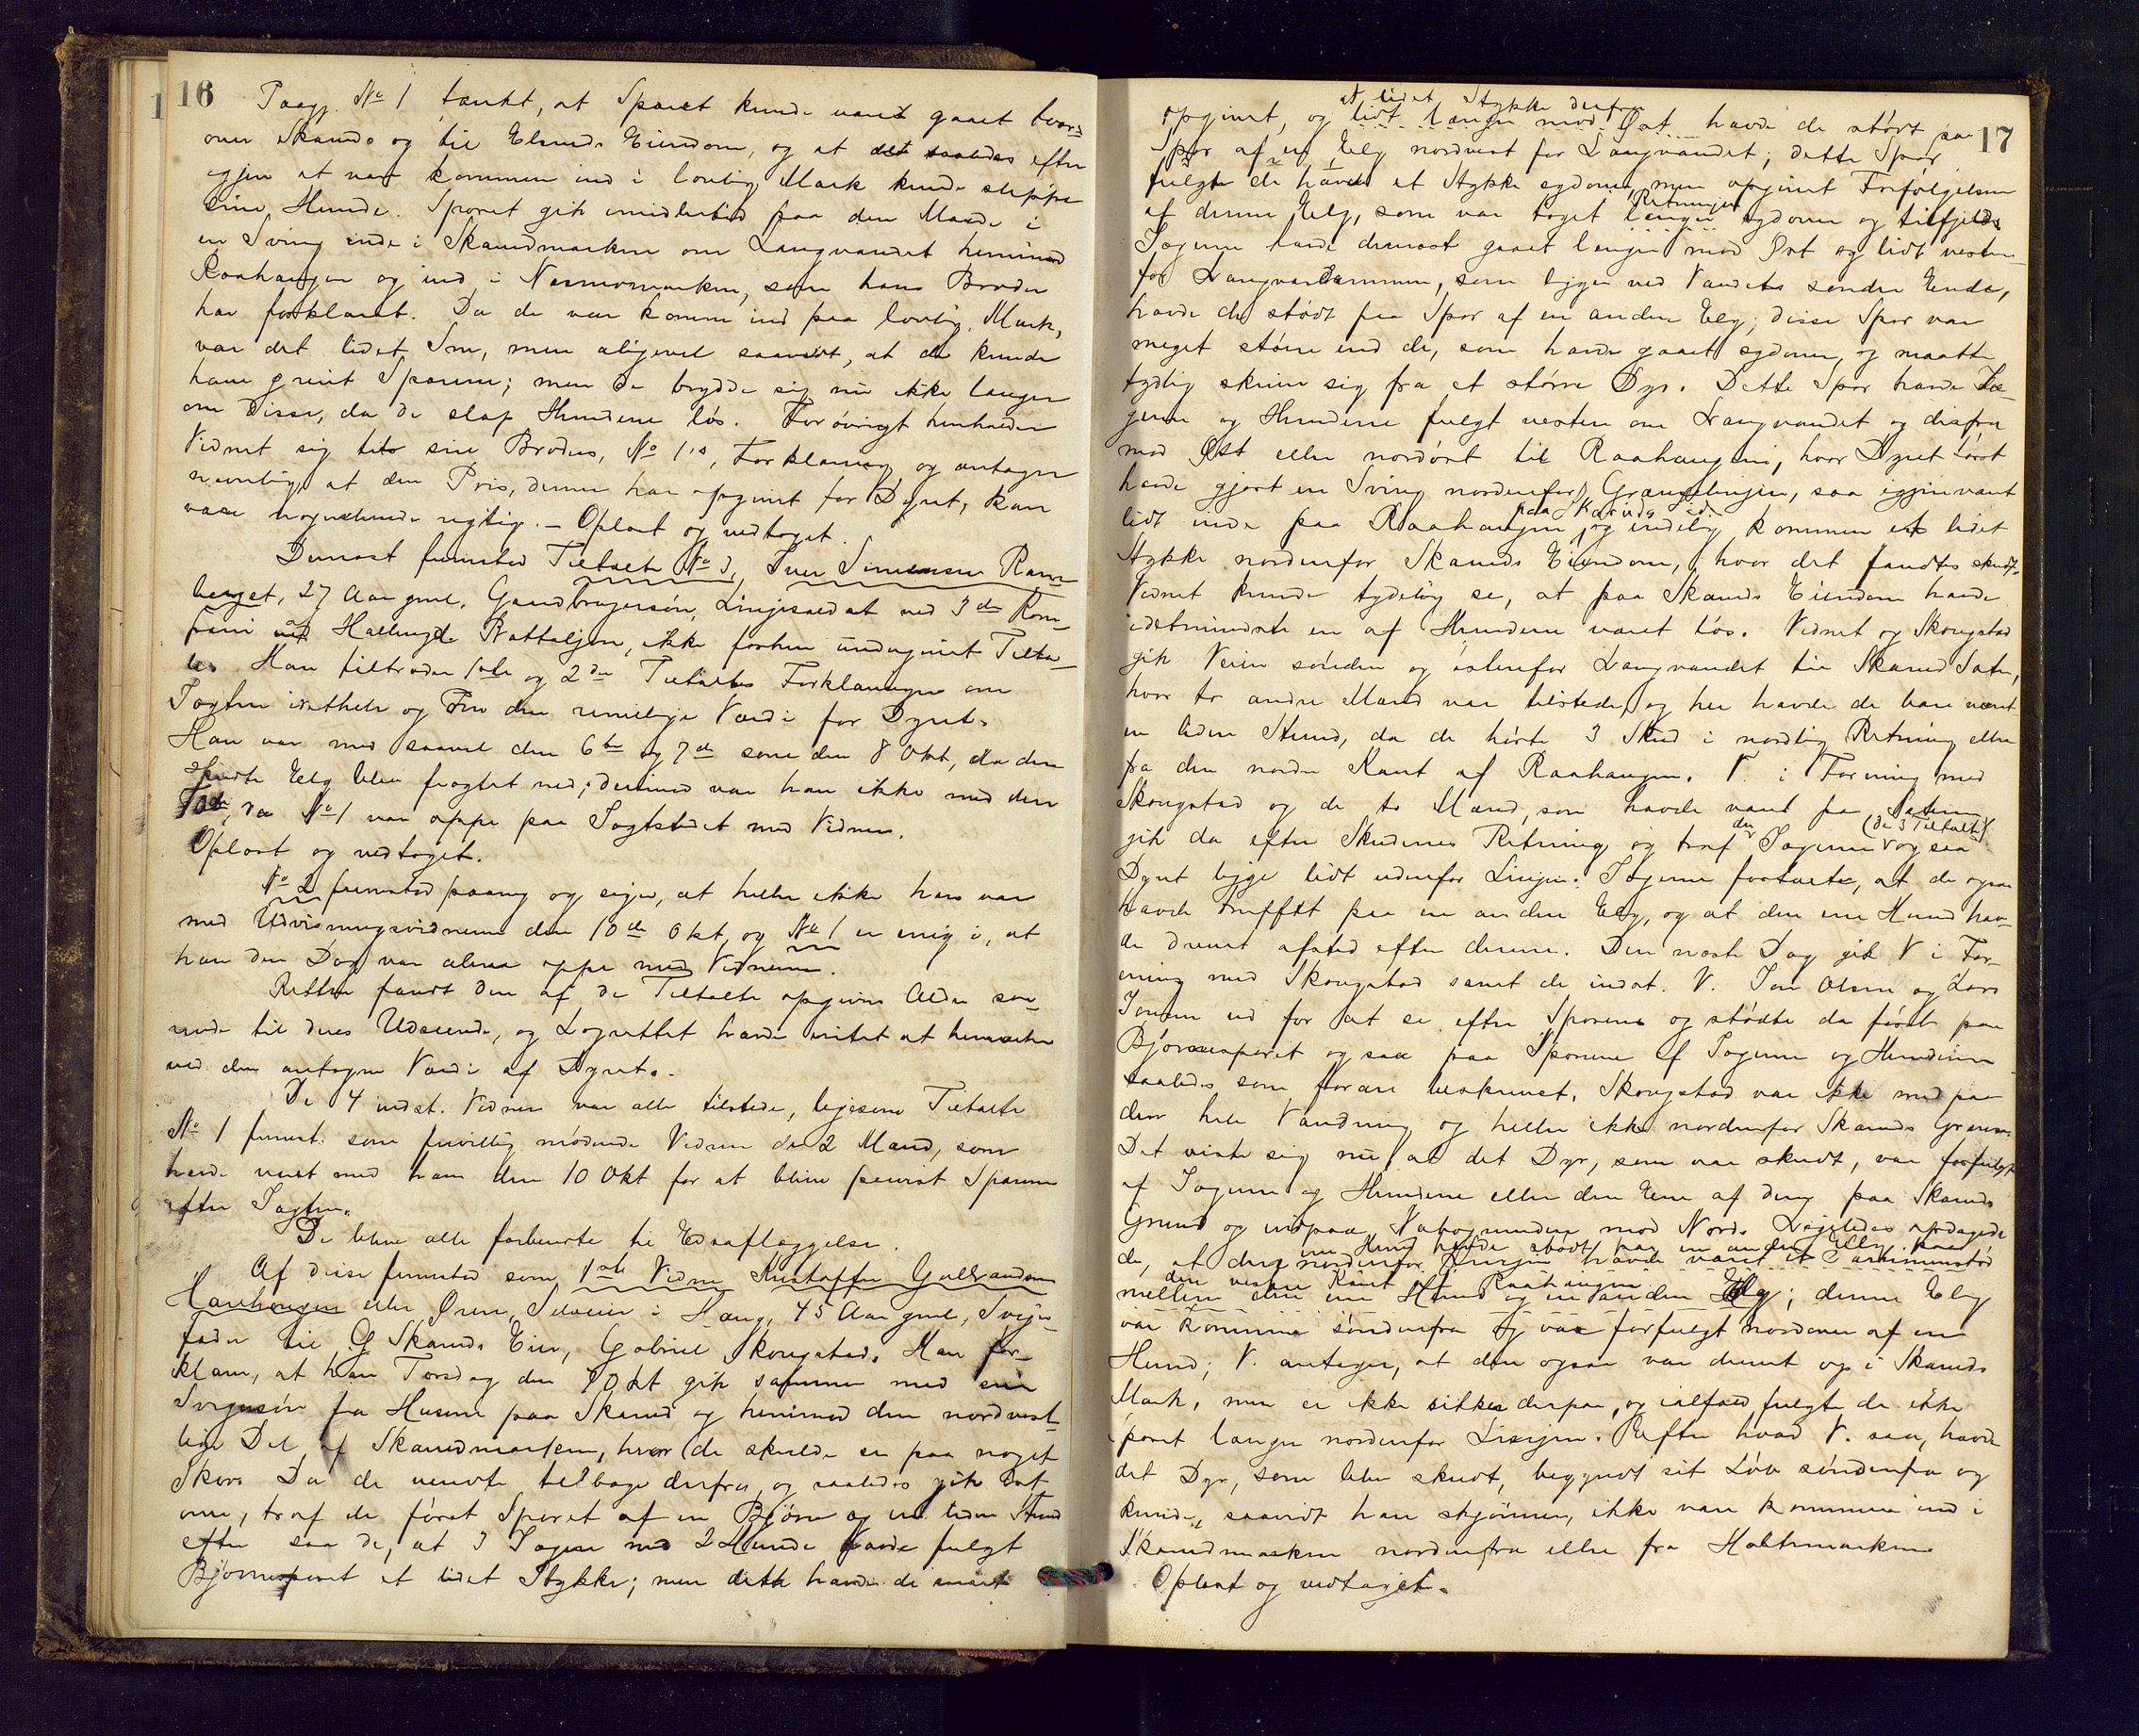 16
Paagj. No 1 tænkt, at Sporet kunde været gaaet tvers
over Skaruds og til Elsruds Eiendom, og at det saaledes efter
igjen at være kommen ind i lovlig Mark kunde slippe
sine Hunde. Sporet gik imidlertid paa den Maade i
en Sving inde i Skarudmarken om Langvandet henimod
Raahaugen og ind i Næsmomarken, som hans Broder
har forklaret. Da de var komne ind paa lovlig Mark,
var det lidet Sne, men aligevel saavidt, at de kunde
have greiet Sporene; men de brydde sig nu ikke længer
om disse, da de slap Hundene løs. Forøvrigt henholder
Vidnet sig til sin Broders, No 1's, Forklaring og antager
navnlig, at den Pris, denne har opgivet for Dyret, kan
være nogenlunde rigtig. – Oplæst og vedtaget.
Dernæst fremstod Tiltalte No 3, Iver Simensen Rams-
berget, 27 Aar gml, Gaardbrugersøn, Linjesoldat ved 3de Kom-
pani af Hallingd. Battaljon, ikke forhen undergivet Tilta-
le. Han tiltræder 1ste og 2den Tiltaltes Forklaringer om
Jagten i et og alt og om den rimelige Værdi for Dyret.
Han var med saavel den 6te og 7de som den 8 Okt, da den
skudte Elg blev fragtet ned; derimod var han ikke med den
10de, da No 1 var oppe paa Jagtstedet med Vidner.
Oplæst og vedtaget.
No 2 fremstod paany og siger, at heller ikke han var
med Udvisningsvidnerne den 10de Okt, og No 1 er enig i, at
han den Dag var alene oppe med Vidnerne.
Retten fandt den af de Tiltalte opgivne Alder sva-
rende til deres Udseende, og Lagrettet havde intet at bemærke
ved den antagne Værdi af Dyret.
De 4 indst. Vidner var alle tilstede, ligesom Tiltalte
No 1 fremst. som frivillig mødende Vidner de 2 Mænd, som
havde været med ham den 10 Okt for at blive paavist Sporene
efter Jagten.
De bleve alle forberedte til Edsaflæggelse.
Af disse fremstod som 1ste Vidne Kristoffer Gulbrandsen
Haverhaugen eller Øren, Selveier i Haug, 45 Aar gml, Sviger-
fader til G Skaruds Eier, Gabriel Skougstad. Han for-
klarer, at han Torsdag den 7 Okt gik sammen med sin
Svigersøn fra Husene paa Skarud og henimod den nordvest-
lige Del af Skarudmarken, hvor de skulde se paa noget
Skov. Da de vendte tilbage derfra, og saaledes gik Øst
over, traf de først Sporet af en Bjørn og en liden Stund
efter saa de, at 3 Jægere med 2 Hunde havde fulgt
Bjørnesporet et lidet Stykke; men dette havde de snart
17
opgivet, og lidt længer mod Øst havde de stødt paa
et lidet Stykke derfra
Spor af en Elg nordvest for Langvandet; dette Spor
fulgte de havde et Stykke sydover, men opgivet Forfølgelsen
af denne Elg, som var taget længer sydover og tilfjelds.
Retningen
Jægerne havde dernæst gaaet længer mod Øst og lidt vesten-
for Langvanddammen, som ligger ved Vandets søndre Ende,
havde de stødt paa Spor af en anden Elg; disse Spor var
meget større end de, som havde gaaet sydover, og maatte
tydelig skrive sig fra et større Dyr. Dette Spor havde Jæ-
gerne og Hundene fulgt vesten om Langvandet og derfra
mod Øst eller nordøst til Raahaugen, hvor Dyret først
havde gjort en Sving nordenfor Grændselinjen, saa igjen været
lidt inde paa Raahaugen og endelig kommen et lidet
paa Skaruds Side
Stykke nordenfor Skaruds Eiendom, hvor det fandtes skudt.
Vidnet kunde tydelig se, at paa Skaruds Eiendom havde
idetmindste en af Hundene været løs. Vidnet og Skougstad
gik Veien sønden og østenfor Langvandet til Skarud Sæter,
hvor to andre Mænd var tilstede, og her havde de bare været
en liden Stund, da de hørte 3 Skud i nordlig Retning eller
fra den nordre Kant af Raahaugen. V. i Forening med
Skougstad og de to Mænd, som havde været paa Sæteren
gik da efter Skudenes Retning og traf Jægerne og saa
der
(de 3 Tiltalte)
Dyret ligge lidt udenfor Linjen. Jægerne fortalte, at de ogsaa
havde truffet paa en anden Elg, og at den ene Hund hav-
de drevet afsted efter denne. Den næste Dag gik V i For-
ening med Skougstad samt de indst. V. Jon Olsen og Lars
Jonsen ud for at se efter Sporene og stødte da først paa
Bjørnesporet og saa paa Sporene af Jægerne og Hundene
saaledes som foran beskrevet. Skougstad var ikke med paa
den hele Vandring og heller ikke nordenfor Skaruds Grænse.
Det viste sig nu, at det Dyr, som var skudt, var forfulgt
af Jægerne og Hundene eller den Ene af dem paa Skaruds
Grund og indpaa Nabogrunden mod Nord. Ligeledes opdagede
de, at der nordenfor Linjen havde været et Sammenstød
en Hund havde stødt paa en anden Elg paa
mellem den ene Hund og en anden Elg; denne Elg
den vestre Kant af Raahaugen
var kommen søndenfra og var forfulgt nordover af en
Hund; V. antager, at den ogsaa var drevet op i Skaruds
Mark, men er ikke sikker derpaa, og ialfald fulgte de ikke
sporet længer nordenfor Linjen. Efter hvad V. saa, havde
det Dyr, som blev skudt, begyndt sit Løb søndenfra og
kunde, saavidt han skjønner, ikke være kommen ind i
Skarudmarken nordenfra eller fra Holtemarken.
Oplæst og vedtaget.